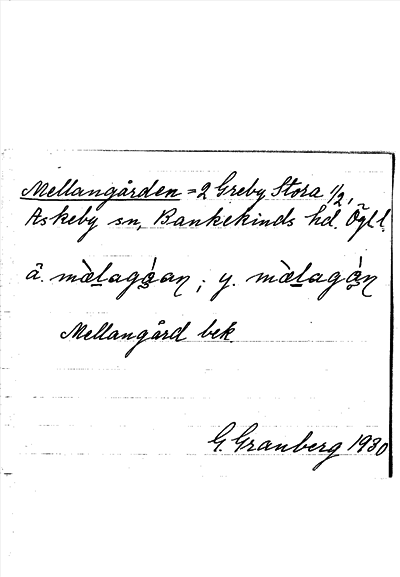 Mellangården = 2 Greby Stora 1/2,
Askeby sn, Bankekinds hd. Ögl.
ä. mæ̀lagǫ́an; y. mæ̀lagǫ́n
Mellangård bek.
G. Granberg 1930